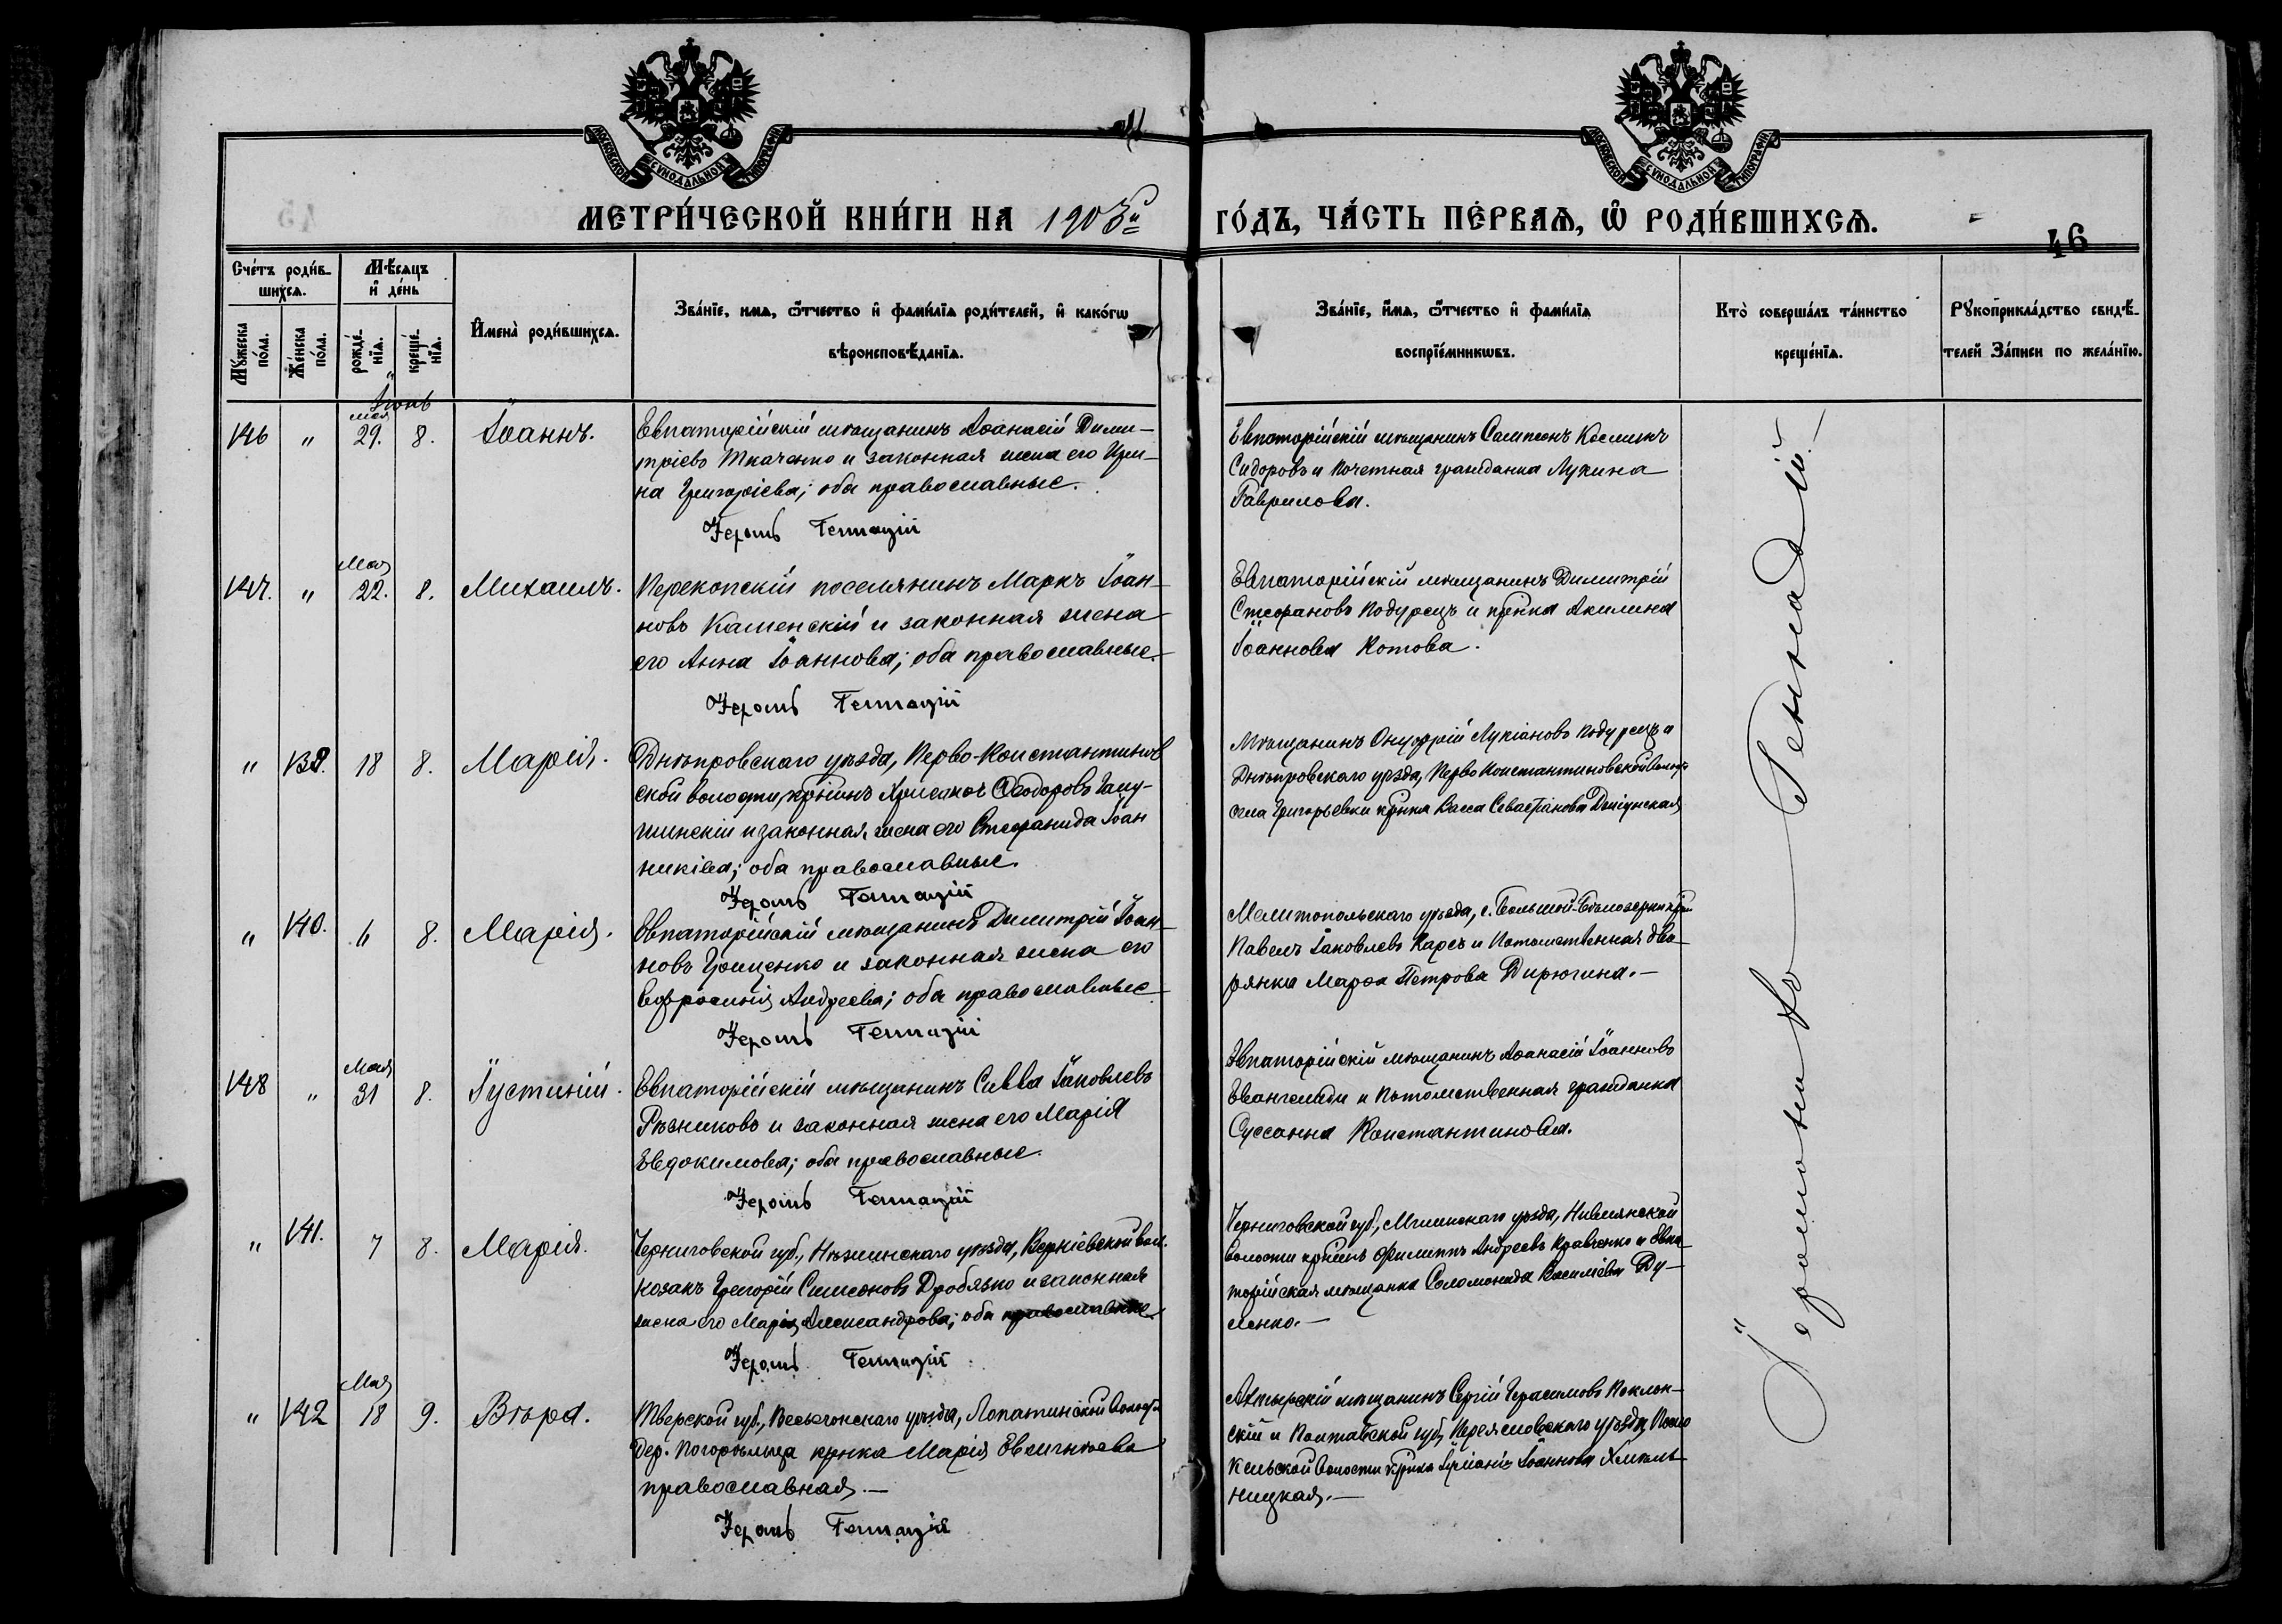 МОСКОВСКОЙ СѴНОДАЛЬНОЙ ТИПОГРАФІИ
МОСКОВСКОЙ СѴНОДАЛЬНОЙ ТИПОГРАФІИ
МЕТРИ́ЧЕСКОЙ КНИ́ГИ НА 1903й ГО́ДЪ, ЧА́СТЬ ПЕ́РВАѦ, Ѡ҆ РОДИ́ВШИХСѦ.
46
Сче́тъ роди́в-
шихсѧ.
Мѣ́сѧцъ
и҆ де́нь
Мꙋ́жеска
по́ла.
Же́нска
по́ла.
рожде́-
нїѧ.
креще́-
нїѧ.
И҆мена̀ роди́вшихсѧ.
Зва́нїе, имѧ, ѻ҆́тчество и҆ фами́лїѧ роди́телей, и҆ како́гѡ
вѣроисповѣ́данїѧ.
Зва́нїе, и҆́мѧ, ѻ҆́тчество и҆ фами́лїѧ
воспрїе́мникѡвъ.
Кто̀ соверша́лъ та́инство
креще́нїѧ.
Рꙋкоприкла́дство свидѣ́-
телей За́писи по жела́нїю.
Іюнь
мая
146 " 29. 8. Іоаннъ.
Евпаторійскій мѣщанинъ Аѳанасій Дими-
тріевъ Ткаченко и законная жена его Ири-
на Григоріева; оба православные.
Іеромъ Геннадій
Евпаторійскій мѣщанинъ Сампсонъ Косминъ
Сидоровъ и почетная гражданка Лукина
Гаврилова.
Мая
147. " 22. 8. Михаилъ.
Перекопскій поселянинъ Маркъ Іоан-
новъ Каменскій и законная жена
его Анна Іоаннова; оба православные.
Іеромъ Геннадій
Евпаторійскій мѣщанинъ Димитрій
Стефановъ Подурецъ и крѣнка Акилина
Іоаннова Котова.
" 139. 18 8. Марія.
Днѣпровскаго уѣзда, Перво-Константинов
ской волости, крѣнинъ Ѳеодоровъ
и законная жена его Стефанида Іоан
никіева; оба православные.
Іеромъ Геннадій
Мѣщанинъ Онуфрій Лукіановъ Подурецъ и
Днѣпровскаго уѣзда, Перво Константиновской волост
села Григорьевки крѣнка Васса Севастіанова
" 140. 6 8. Марія.
Евпаторійскій мѣщанинъ Димитрій Іоан-
новъ Грищенко и законная жена его
Евфросинія Андреева; оба православные
Іеромъ Геннадій
Мелитопольскаго уѣзда, с. Большой-Бѣлозерки крѣн
Павелъ Іаковлевъ Карсъ и Потомственная дво-
рянка Марѳа Петрова Дирюгина.-
Мая
148 " 31 8. Іустиній.
Евпаторійскій мѣщанинъ Савва Іаковлевъ
Рѣзниковъ и законная жена его Марія
Евдокимова; оба православные.
Іеромъ Геннадій
Евпаторійскій мѣщанинъ Аѳанасій Іоанновъ
Евангелиди и Потомственная гражданка
Суссанна Константинова.
" 141. 7 8. Марія.
Черниговской губ., Нѣжинскаго уѣзда, Веркіевской вол.
козакъ Григорій Симеоновъ Дробязко и законная
жена его Марія Александрова; оба православные.
Іеромъ Геннадій
Черниговской губ., Мглинскаго уѣзда, Нивлянской
волости крѣнинъ Филиппъ Андреевъ Кравченко и Евпа-
торійская мѣщанка Соломонида Василіева Ду-
ленко.-
Мая
" 142 18 9. Вѣра.
Тверской губ., Весьегонскаго уѣзда, Лопатинской волости
дер. Погорѣльца крѣнка Марія Евлигнѣева
православная.-
Іеромъ Геннадій
Ахтырскій мѣщанинъ Сергій Герасимовъ Поклон-
скій и Полтавской губ, Переяславскаго уѣзда,
волости крѣнка Іуліанія Іоаннова Хмель-
ницкая.-
Іеромонахъ Геннадій